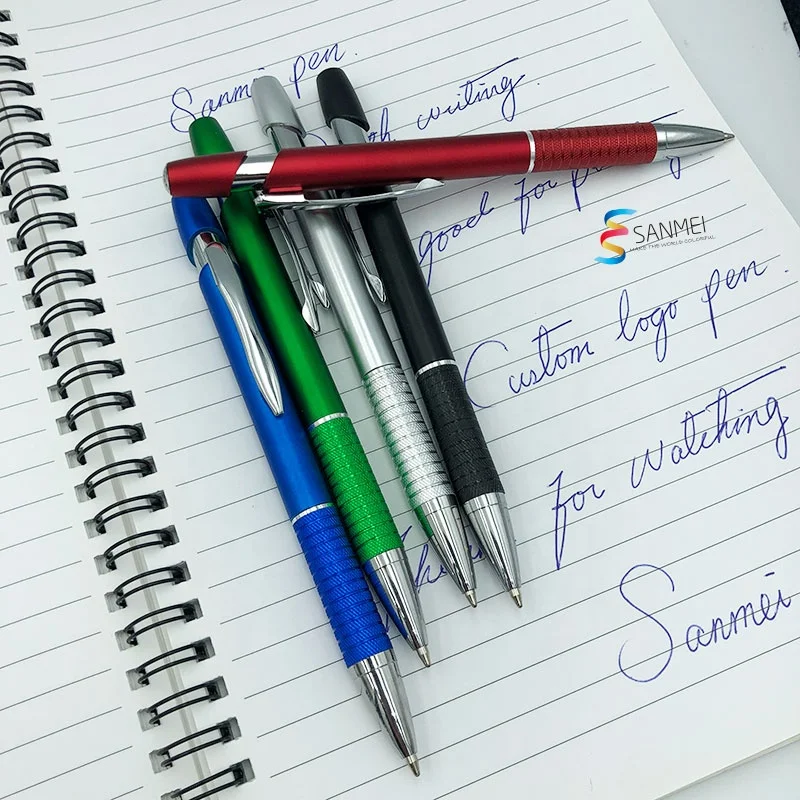 Sanmei pen.
writing.
good for
SANMEI
MAKE THE WORLD COLORFUL
Custom logo pen.
for watching
Sanmei